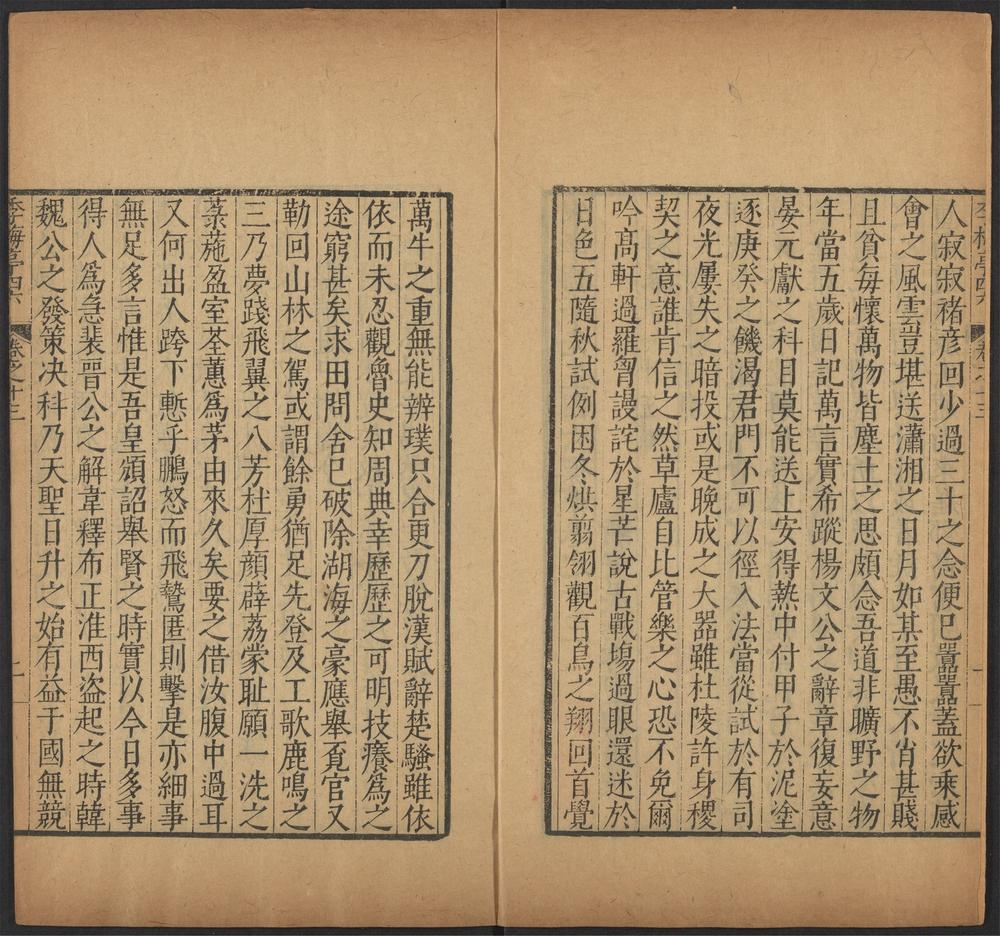 李梅亭四六 卷之十三
人寂寂褚彦回少過三十之念便已囂囂蓋欲乘感
會之風雲豈堪送瀟湘之日月如某至愚不肖甚賤
且貧每懷萬物皆塵土之思頗念吾道非曠野之物
年當五歲日記萬言實希蹤楊文公之辭章復妄意
晏元獻之科目莫能送上安得熱中付甲子於泥塗
逐庚癸之饑渴君門不可以徑入法當從試於有司
夜光屢失之暗投或是晚成之大器雖杜陵許身稷
契之意誰肯信之然草廬自比管樂之心恐不免爾
吟髙軒過羅胷謾詫於星芒說古戰塲過眼還迷於
日色五隨秋試例困冬烘翦翎觀百鳥之翔回首覺
萬牛之重無能辨璞只合更刀脫漢賦辭楚騷雖依
依而未忍觀魯史知周典幸歷歷之可明技癢爲之
途窮甚矣求田問舍已破除湖海之豪應舉覔官又
勒回山林之駕或謂餘勇猶足先登及工歌鹿鳴之
三乃夢踐飛翼之八芳杜厚顔薜荔蒙耻願一洗之
菉葹盈室荃蕙爲茅由來久矣要之借汝腹中過耳
又何出人跨下慙乎鵬怒而飛鷙匿則擊是亦細事
無足多言惟是吾皇頒詔舉賢之時實以今日多事
得人爲急裴晉公之解韋釋布正淮西盗起之時韓
魏公之發策决科乃天聖日升之始有益于國無競
李梅亭四六 卷之十三